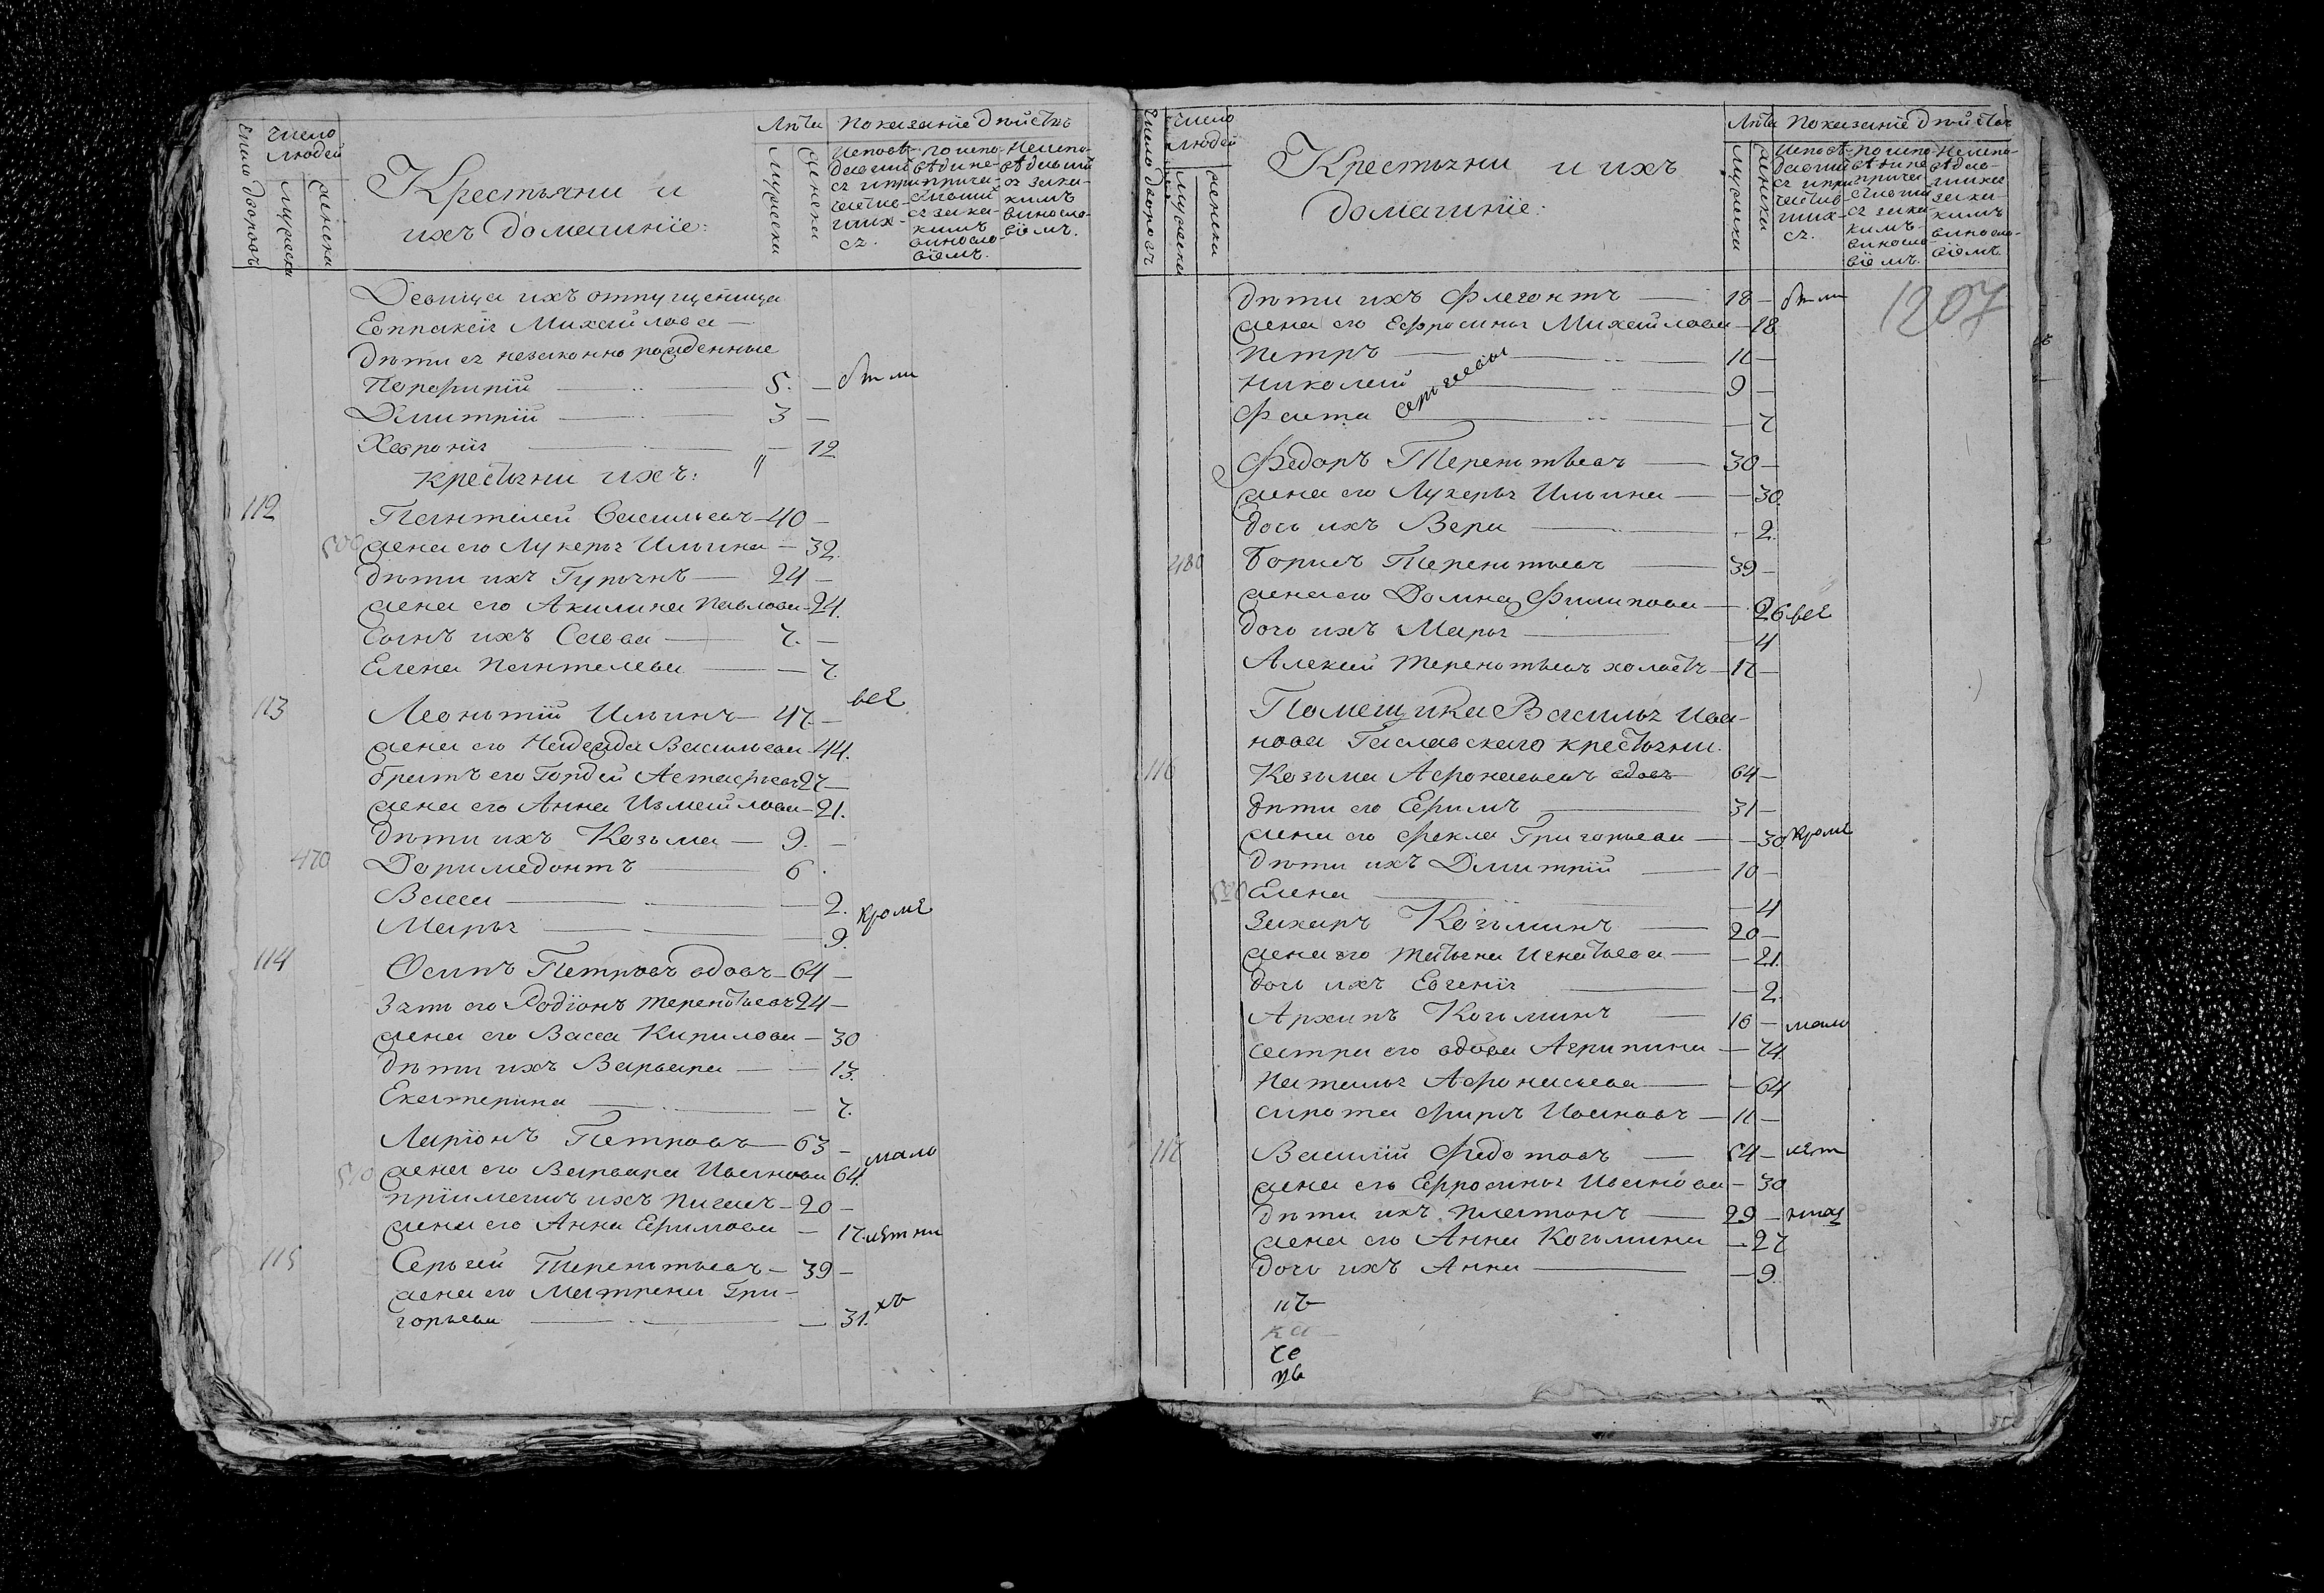 Число дворовъ
Число людей
мужеска
женска
Крестьяни и
ихъ домашніе:
Лѣта
мужески
женски
Показаніе дѣйствъ
Исповѣ-
давшихъ
Девица ихъ отпущеница
Евпраксія Михайлова —
дѣти ея незаконно рожденные
Порфирій — 5. — были
Дмитрій — 3 —
Хеврония — 12
Крестьяни ихъ:
112 Пантелей Васильевъ — 40 —
жена его Лукерья Ильина — 32.
дѣти ихъ Гурьянъ — 24 —
жена его Акилина Павлова — 24.
Сынъ ихъ Савва — 7. —
Елена Пантелева — 7.
всѣ
113 Леонътій Ильинъ — 47. —
жена его Надежда Васильева — 44.
братъ его Гордей Астафьевъ 27 —
жена его Анна Измайлова — 21.
дѣти ихъ Козьма — 9. —
470 Доримедонтъ — 6
Васса — 2.
кромѣ
Марья — 9.
114 Осипъ Петровъ вдовъ — 64 —
Зять его Родіонъ Терентьевъ 24 —
жена его Васса Кирилова — 30
дѣти ихъ Варвара — 13.
Екатерина — 7.
Ларіонъ Петровъ — 63 —
мало
жена его Варвара Иванова 64.
пріимышъ ихъ Пигасъ — 20 —
жена его Анна Ефимова — 17. лѣтни
115 Серьгей Терентьевъ — 39 —
жена его Матрена Гри-
горьева — 31. хъ
Число дворовъ
Число людей
мужеска
женска
Крестьяни и ихъ
домашніе:
Лѣта
мужески
женски
Показаніе дѣйствъ
1207
дѣти ихъ Флегонтъ — 18 — были
жена его Ефросинья Михайлова — 18
Петръ — 11 —
Николай — 9 —
Сергѣевы
Фаина — 7
Федоръ Терентьевъ — 30 —
жена его Лукерья Ильина — 30.
дочь ихъ Вера — 2.
480 Борисъ Терентьевъ — 39 —
жена его Домна Филипова — 26 всѣ
дочь ихъ Марья — 4
Алексей Терентьевъ холостъ — 17 —
Помещика Василья Ива-
нова Гаславскаго крестьяни.
116 Козьма Афонасьевъ вдовъ 64 —
дѣти его Ефимъ — 31 —
жена его Фекла Григорьева — 30 кромѣ
дѣти ихъ Дмитрій — 10 —
Елена — 4
Захаръ Козьминъ — 20 —
жена его Татьяна Игнатьева — 21.
дочь ихъ Евгенія — 2.
Архипъ Козьминъ — 16 — мало
сестра его вдова Агрипина — 74.
Наталья Афонасьева — 64
сирота Фирсъ Ивановъ — 11 —
117 Василій Федотовъ — 54 — лѣт
жена его Ефросинья Иванова — 30
дѣти ихъ Платонъ — 29 —
жена его Анна Козьмина — 27
дочь ихъ Анна — 9.